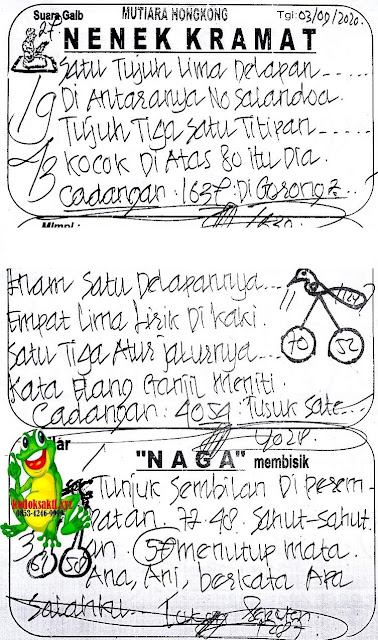 Suara Gaib MUTIARA HONGKONG Tgl:03/09/2020.
NENEK KRAMAT
Satu Tujuh Lima Delapan
Di Antaranya No salandoa.
19
Tujuh Tiga satu Titipan
kocok Di Atas 80 itu Dia.
43
Cadangan. 1637. Di Gorong2
Mimpi:
Enam Satu Delapannya
Empat Lima Lirik Di kaki.
70 52
Satu Tiga Atur jalurnya
Kata Elang Ganjil Meniti.
Cadangan: 4054: Tusuk Sate
4024
"NAGA" membisik
Tunjuk Sembilan Di pesem-
kodoksakti.xyz
0853-4246-
yatan 72.48. Sahut-sahut.
57 menutup mata.
61 50
Ana, Ani, berkata Apa
Salahku